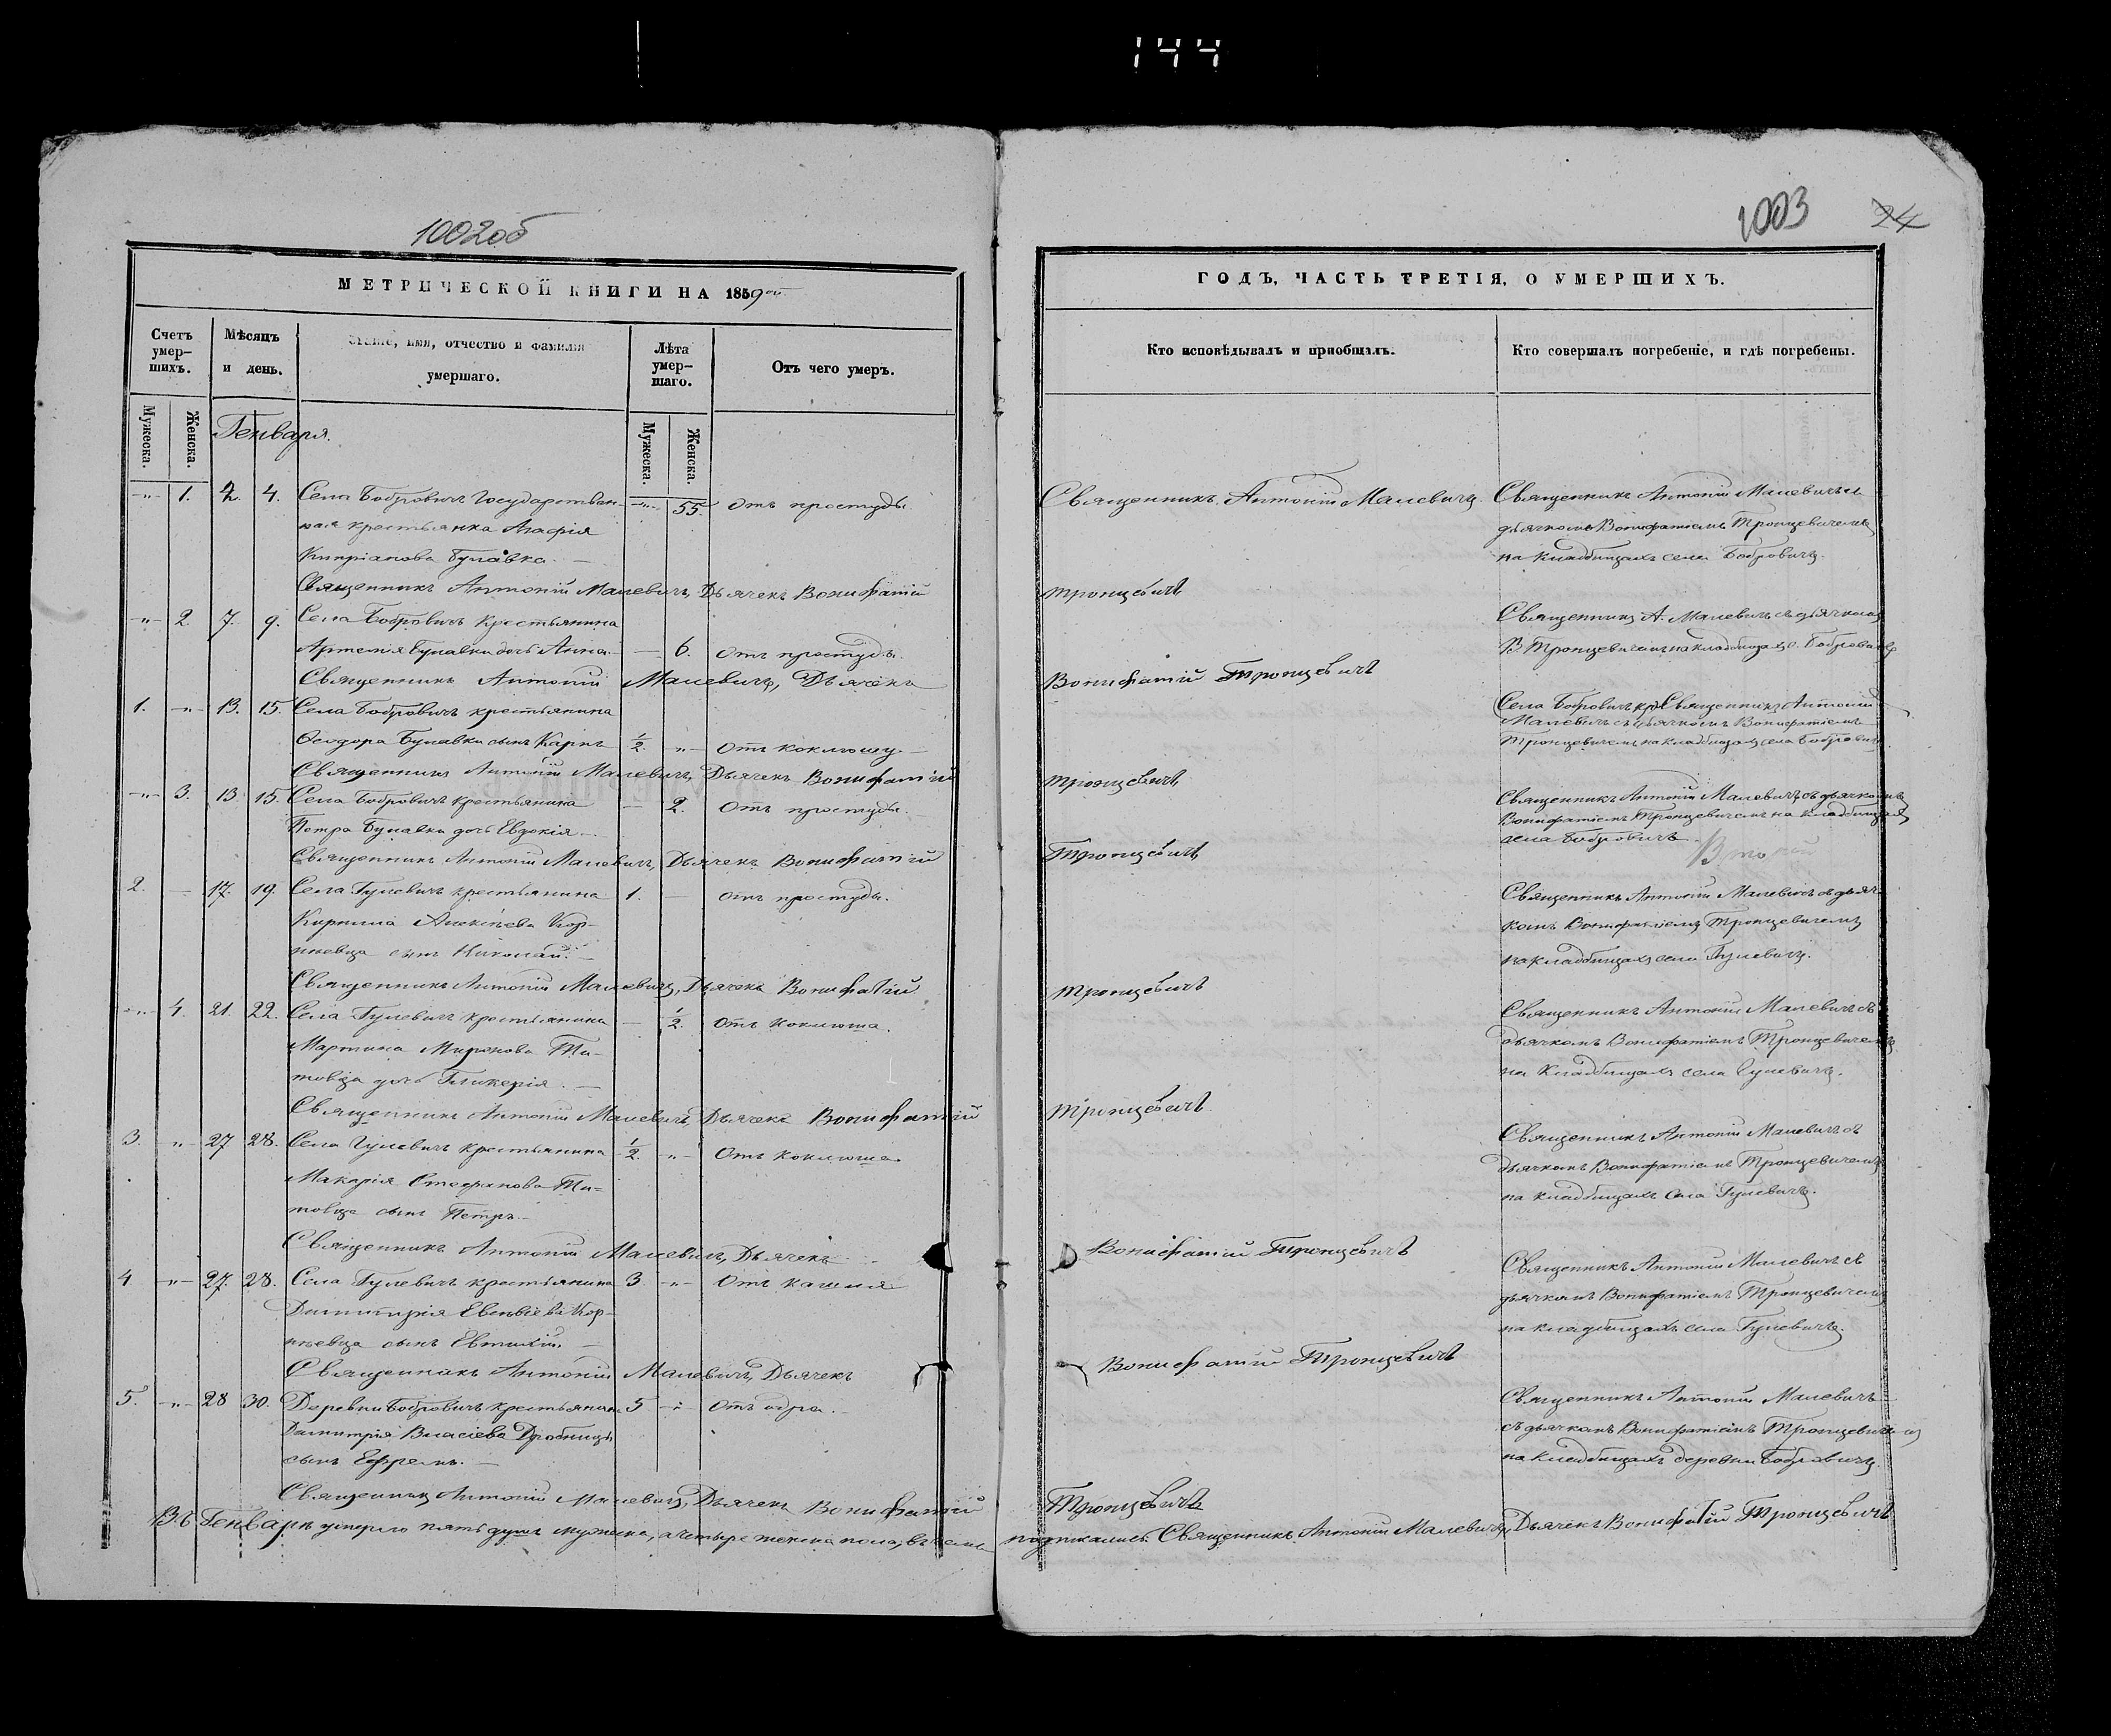 144
1002об
МЕТРИЧЕСКОЙ КНИГИ НА 1859ой
Счетъ умер-шихъ.
Мѣсяцъ и день.
Званіе, имя, отчество и фамилія умершаго.
Лѣта умер-шаго.
Отъ чего умеръ.
Мужеска.
Женска.
Мужеска.
Женска.
Генваря.
-"- 1. 2. 4. Села Бобровичъ Государствен- -"- 55. Отъ простуды.
ная крестьянка Агафія
Кипріанова Булавка.
Священникъ Антоній Малевичъ, Дьячекъ Вонифатій
-"- 2. 7. 9. Села Бобровичъ крестьянина
Артемія Булавки дочь Анна. — 6. Отъ простуды.
Священникъ Антоній Малевичъ, Дьячекъ
1. -"- 13. 15. Села Бобровичъ крестьянина
Ѳеодора Булавки сынъ Карпъ 1/2. -"- Отъ коклюшу
Священникъ Антоній Малевичъ, Дьячекъ Вонифатій
-"- 3. 13 15. Села Бобровичъ крестьянина — 2. Отъ простуды.
Петра Булавки дочь Евдокія.
Священникъ Антоній Малевичъ, Дьячекъ Вонифатій
2. — 17. 19. Села Гулевичъ крестьянина 1. — Отъ простуды.
Кирилла Алексѣева Кор-
нѣевца сынъ Николай.
Священникъ Антоній Малевичъ, Дьячекъ Вонифатій
-"- 4. 21. 22. Села Гулевичъ крестьянина — 1/2. Отъ коклюша.
Мартина Миронова Ти-
товца дочь Гликерія.
Священникъ Антоній Малевичъ, Дьячекъ Вонифатій
3. " 27 28. Села Гулевичъ крестьянина 1/2. -"- Отъ коклюша
Макарія Стефанова Ти-
товца сынъ Петръ.
Священникъ Антоній Малевичъ, Дьячекъ
4 -"- 27. 28. Села Гулевичъ крестьянина 3 -"- Отъ кашля
Димитрія Евсевіева Кор-
нѣевца сынъ Евтихій.
Священникъ Антоній Малевичъ, Дьячекъ
5. -"- 28 30. Деревни Бобровичъ крестьянина 5 -"- Отъ
Димитрія Власіева Дробницы
сынъ Ефремъ.
Священникъ Антоній Малевичъ, Дьячекъ Вонифатій
Въ Генварѣ умерло пять душъ мужска, а четыре женска пола, въ чемъ
1003
24
ГОДЪ, ЧАСТЬ ТРЕТІЯ, О УМЕРШИХЪ.
Кто исповѣдывалъ и пріобщалъ.
Кто совершалъ погребеніе, и гдѣ погребены.
Священникъ Антоній Малевичъ.
Священникъ Антоній Малевичъ съ
дьячкомъ Вонифатіемъ Тронцевичемъ
на кладбищахъ села Бобровичъ.
Тронцевичъ
Священникъ А. Малевичъ съ дьячкомъ
В. Тронцевичемъ на кладбищахъ с. Бобровичъ
Вонифатій Тронцевичъ
Села Бобровичъ кр. Священникъ Антоній
Малевичъ съ дьячкомъ Вонифатіемъ
Тронцевичемъ на кладбищахъ села Бобровичъ
Тронцевичъ
Священникъ Антоній Малевичъ съ дьячкомъ
Вонифатіемъ Тронцевичемъ на кладбищахъ
села Бобровичъ
Тронцевичъ
Священникъ Антоній Малевичъ съ дьяч-
комъ Вонифатіемъ Тронцевичемъ
на кладбищахъ села Гулевичъ.
Тронцевичъ
Священникъ Антоній Малевичъ съ
дьячкомъ Вонифатіемъ Тронцевичемъ
на кладбищахъ села Гулевичъ.
Тронцевичъ
Священникъ Антоній Малевичъ съ
дьячкомъ Вонифатіемъ Тронцевичемъ
на кладбищахъ села Гулевичъ.
Вонифатій Тронцевичъ
Священникъ Антоній Малевичъ съ
дьячкомъ Вонифатіемъ Тронцевичемъ
на кладбищахъ села Гулевичъ.
Вонифатій Тронцевичъ
Священникъ Антоній Малевичъ
съ дьячкомъ Вонифатіемъ Тронцевичемъ
на кладбищахъ деревни Бобровичъ
Тронцевичъ
подписались Священникъ Антоній Малевичъ, Дьячекъ Вонифатій Тронцевичъ